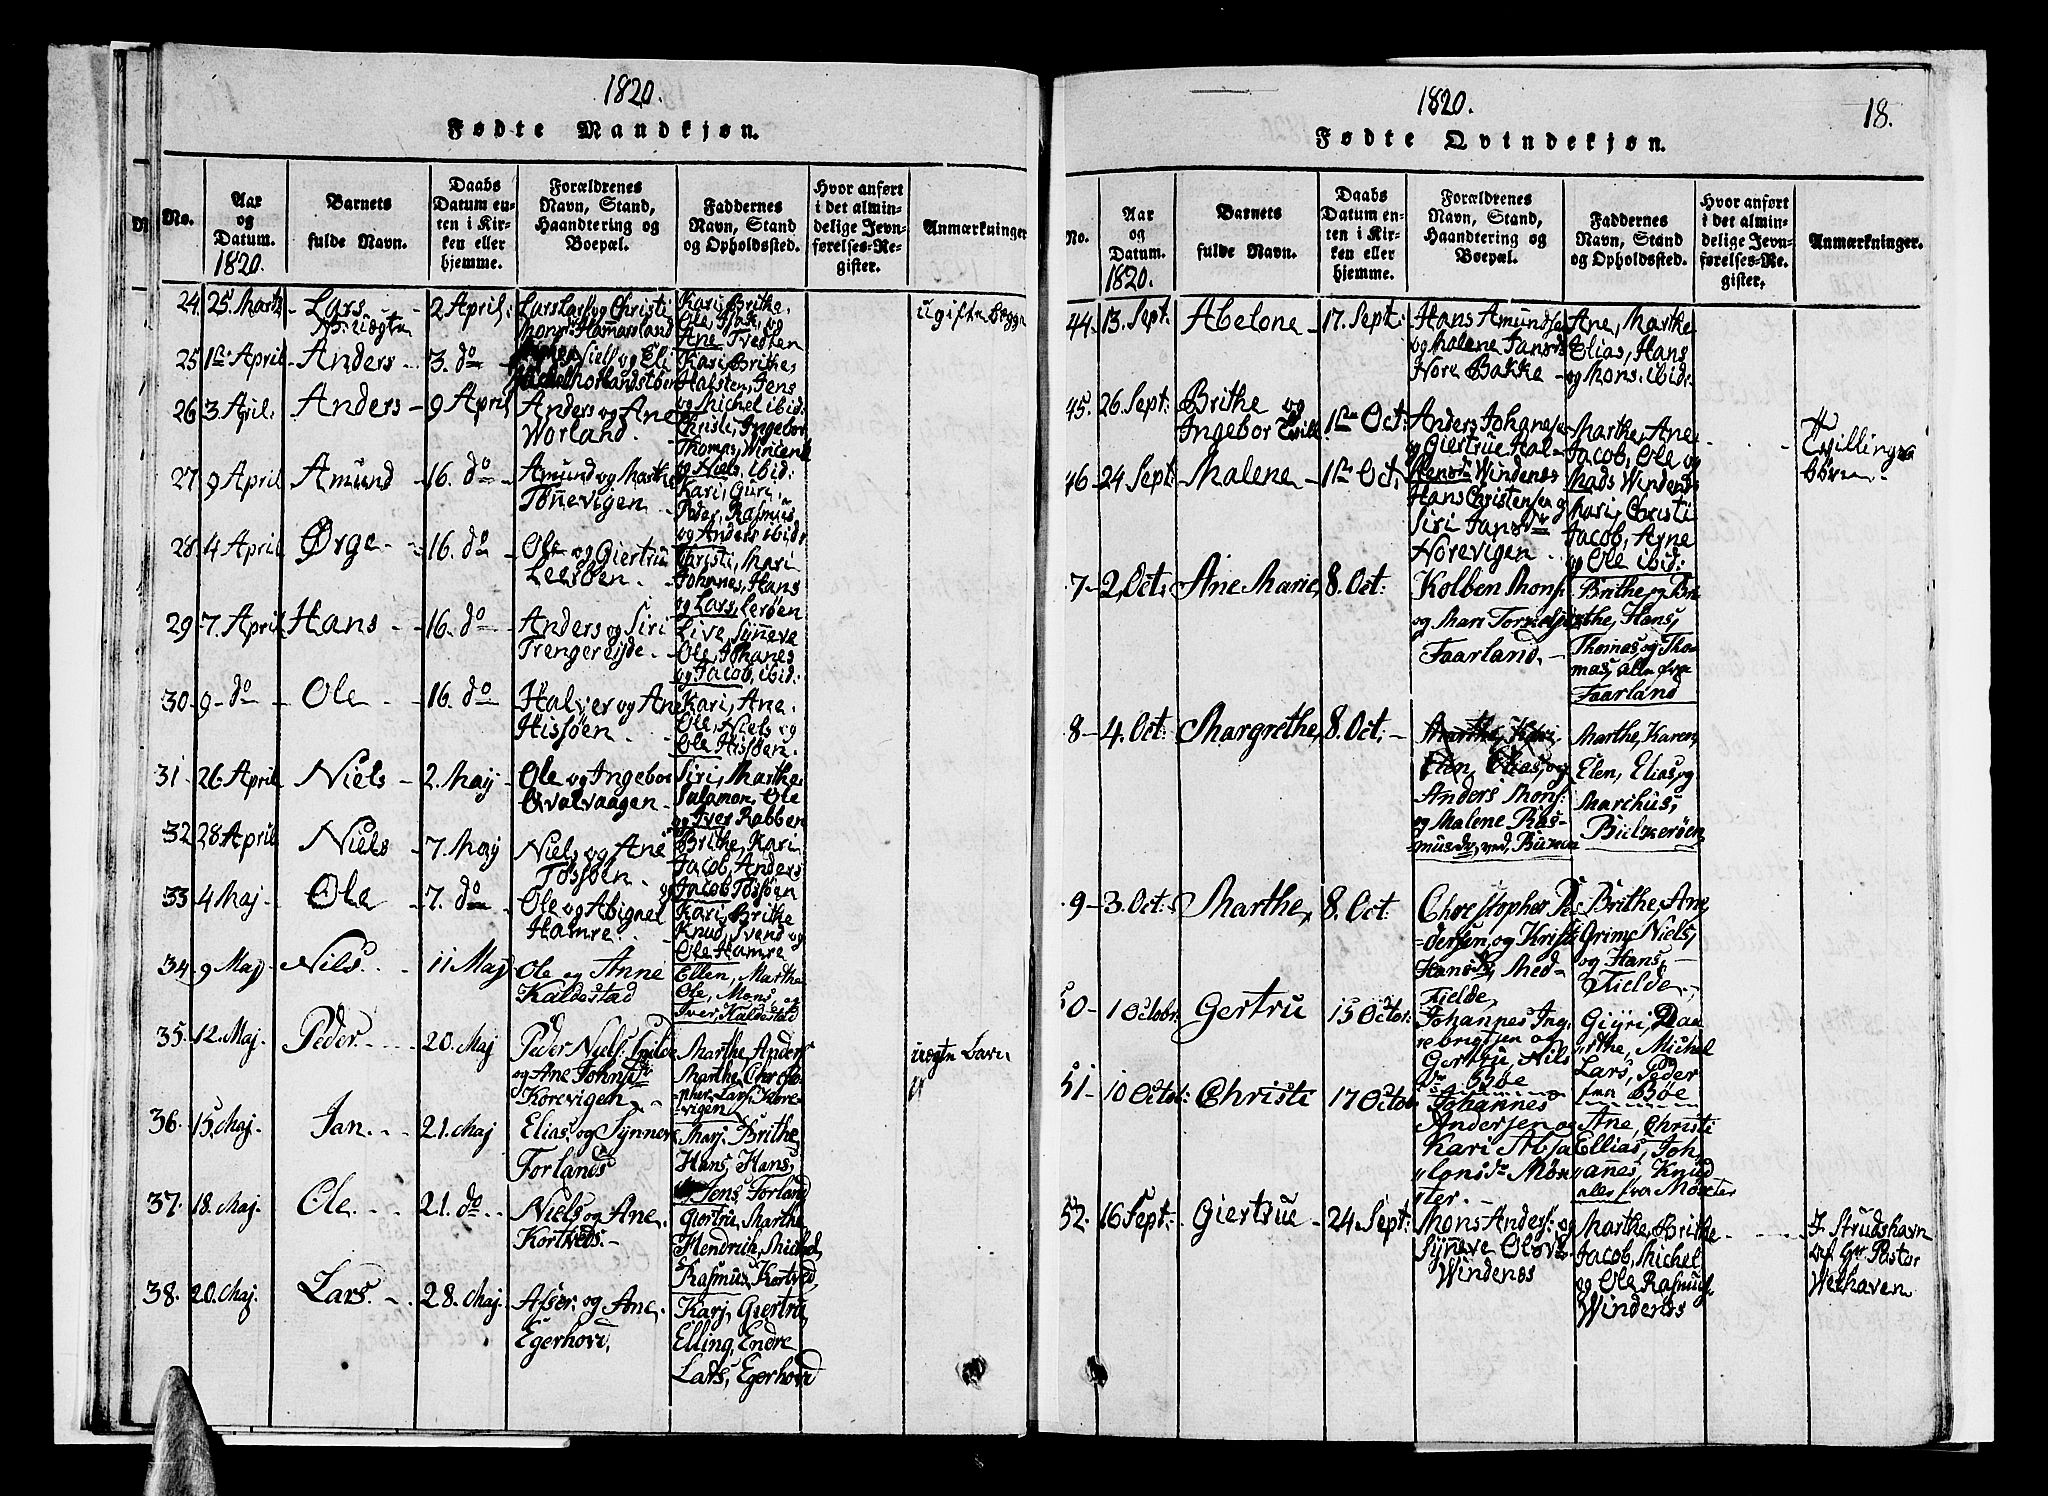 1820.
Fødte Mandkjøn.
No.
Aar
og
Datum.
1820.
Barnets
fulde Navn.
Daabs
Datum en-
ten i Kir-
ken eller
hjemme.
Forældrenes
Navn, Stand,
Haandtering og
Boepæl.
Faddernes
Navn, Stand
og Opholdssted.
Hvor anført
i det almin-
delige Jevn-
førelses-Re-
gister.
Anmærkninger
24. 25 Martz - Lars
2 April:
Kari, Brithe,
Ane Tvedten
25 1ste April - Anders - 3. do
Kari, Brithe,
Halsten, Jens
og Michel ibid:
26 3 April: Anders - 9 April
Anders og Ane
Worland.
Christi, Ingebor
Thomas, Wincent
og Niels, ibid:
27 9 April Amund 16. do
Amund og Marthe
Tønevigen
Kari, Guri,
Peder, Rasmus
og Anders ibid:
28 4 April Ørge - 16. do
Ole og Giertru
Leerøen
Christi, Mari
Johanes, Hans
og Lars, Lerøen
29 7. April Hans - 16. do
Anders og Siri
Trengereijde
Live, Synneve
Ole, Johanes
og Jacob, ibid:
30 9 - do - Ole - 16. do
Halver og Ane
Hissøen
Kari, Ane
Ole, Niels og
Ole Hissøen.
31 26 April Niels - 2. Maij
Ole og Ingebor
Qvalvaagen
Siri, Marthe
Salamon, Ole
og Iver Rabben
32 28 April Niels - 7. Maij
Niels og Ane
Tøssøen
Brithe, Kari
Jacob, Anders
Jacob Tøssøen
33 4 Maj - Ole - 7. do
Ole og Abignel
Hamre.
Kari, Brithe
Knud, Svend og
Ole Hamre
34 9 Maj Nils 11 Maj
Ole og Anne
Kaldestad
Ellen, Marthe
Ole, Mons,
Iver, Kaldestad
35. 12. Maj. Peder 20. Maj
Peder Niels:
og Ane Johns
Korevigen
Marthe, Anders
Marthe, Christo-
pher, Lars, Kore-
vigen
uegte Barn
36. 15. Maj. Jan. 21. Maj
Elias og Synneve
Forlands
Marj. Brithe,
Hans, Hans,
Jens Forland
37. 18. Maj. Ole. 21. do
Niels og Ane.
Kortveds.
Giertru, Marthe
Hendrich, Michel,
Rasmus, Kortved,
38. 20. Maj. Lars. 28. Maj.
Afser og Ane.
Egerhovd,
Karj, Giertru,
Elling, Endre
Lars, Egerhovd
1820.
18.
Fødte Qvindekjøn.
No.
Aar
og
Datum.
1820.
Barnets
fulde Navn.
Daabs
Datum en-
ten i Kir-
ken eller
hjemme.
Forældrenes
Navn, Stand,
Haandtering og
Boepæl.
Faddernes
Navn, Stand
og Opholdssted.
Hvor anført
i det almin-
delige Jevn-
førelses-Re-
gister.
Anmærkninger.
44. 13. Sept: Abelone - 17. Sept:
Hans Amundse
og Malene Jansd
Nore Bakke
Ane, Marthe
Elias, Hans
og Mons, ibid:
45. 26 Sept: Brithe og
Ingebor
1ste Oct:
Anders Johanese
og Giertrue Hal-
Windenæs
Marthe, Ane
Jacob, Ole og
Mads Windenæs
Tvillinge
børn
46 - 24 Sept: Malene - 1ste Oct:
Hans Christensen og
Siri Jansd
Norevigen
Mari, Christi
Jacob, Arne
og Ole ibid:
7 - 2. Oct: Ane Marie, 8. Oct:
Kolben Mons:
og Mari
Faarland.
Brithe, og Bri
the, Hans,
Thomas og Tho-
mas, alle fra
Faarland
8 - 4. Oct: Margrethe, 8. Oct:
Elen, Elias, og
Anders Mons:
og Malene Ras-
musdr, ved,
Marthe, Karen,
Elen, Elias og
Marchus,
Bielkerøen,
9 - 3. Oct: Marthe, 8. Oct:
Christopher Pe
dersen, og Kristi
Hansdr, Med-
Fielde,
Brithe, Ane,
Grim, Niels,
og Hans,
Fielde.
50 - 1 Octobr: Gertru 15 Octor:
Johannes Ing-
rebrigtsen og
Gertru, Nils
dr Bøe
Giyri,
Michel
Lars, Peder
fra Bøe
51 - 10 Octob: Christi 17 Octob
Johannes
Andersen og
Kari Absa
lonsdr Møn
ster.
Ane, Christi
Ellias, Joh
annes, Knud
alle fra Mønster
52. 16 Sept: Giertrue - 24 Sept:
Mons Anders: og
Synneve Olsdr.
Windenæs
Marthe, Brithe
Jacob, Michel
og Ole Rasmus
Windenæs
I Strudshavn
af Hr. Pastor
Welhaven